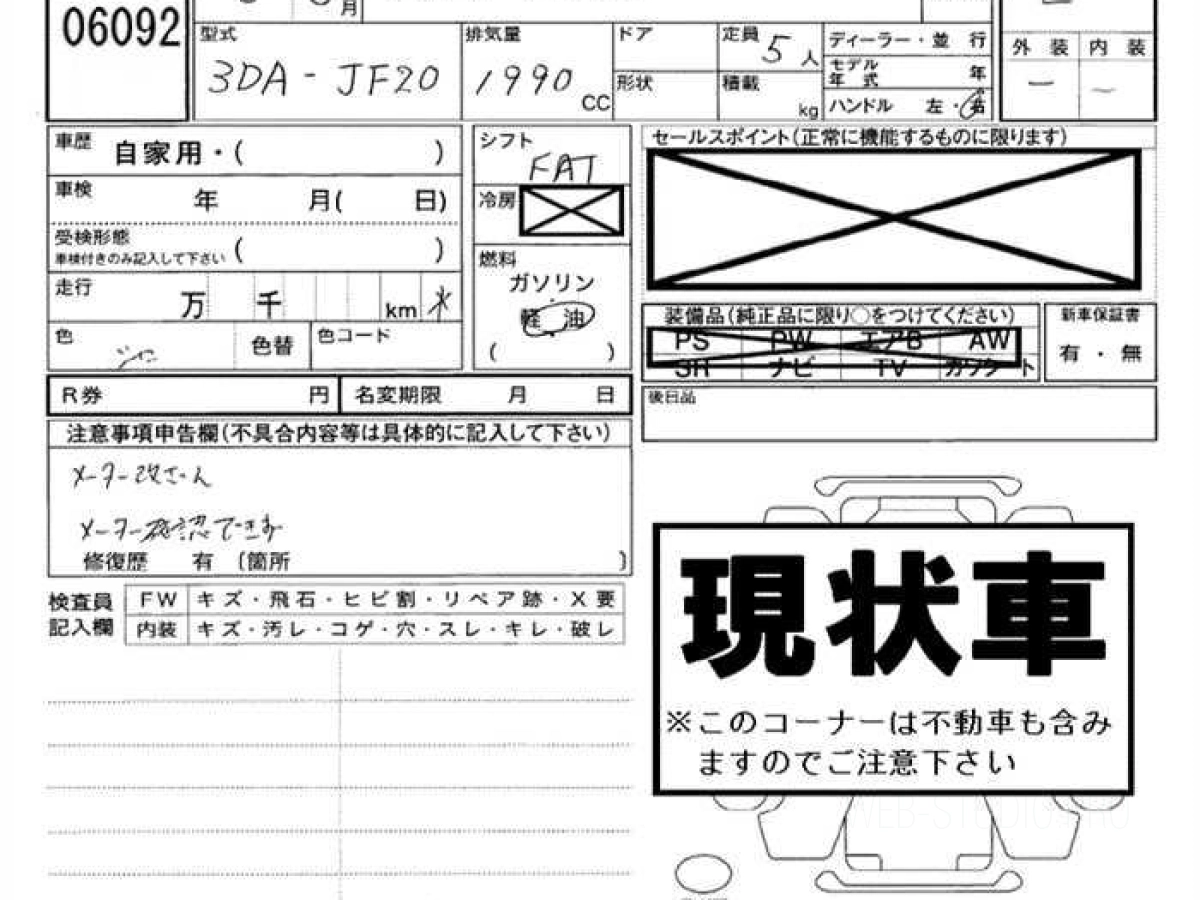 月
06092
型式 排気量 ドア 定員 5 人 ディーラー・並 行 外 装 内 装
3DA - JF20 1990 CC 形状 積載 kg モデル年式 年
ハンドル 左・右
車歴 自家用・( ) シフト FAT セールスポイント(正常に機能するものに限ります)
車検 年 月( 日) 冷房
受検形態 ( )
車検付きのみ記入して下さい
燃料 ガソリン
走行 万 千 km 軽 油
( )
色 色替 色コード
装備品(純正品に限り○をつけてください) 新車保証書
PS PW エアB AW 有・無
SR ナビ TV カワシート
R券 円 名変期限 月 日 後日品
注意事項申告欄(不具合内容等は具体的に記入して下さい)
メーター改ざん
メーター確認できず
修復歴 有 〔箇所 〕
検査員記入欄
FW キズ・飛石・ヒビ割・リペア跡・X要
内装 キズ・汚レ・コゲ・穴・スレ・キレ・破レ
現状車
※このコーナーは不動車も含み
ますのでご注意下さい